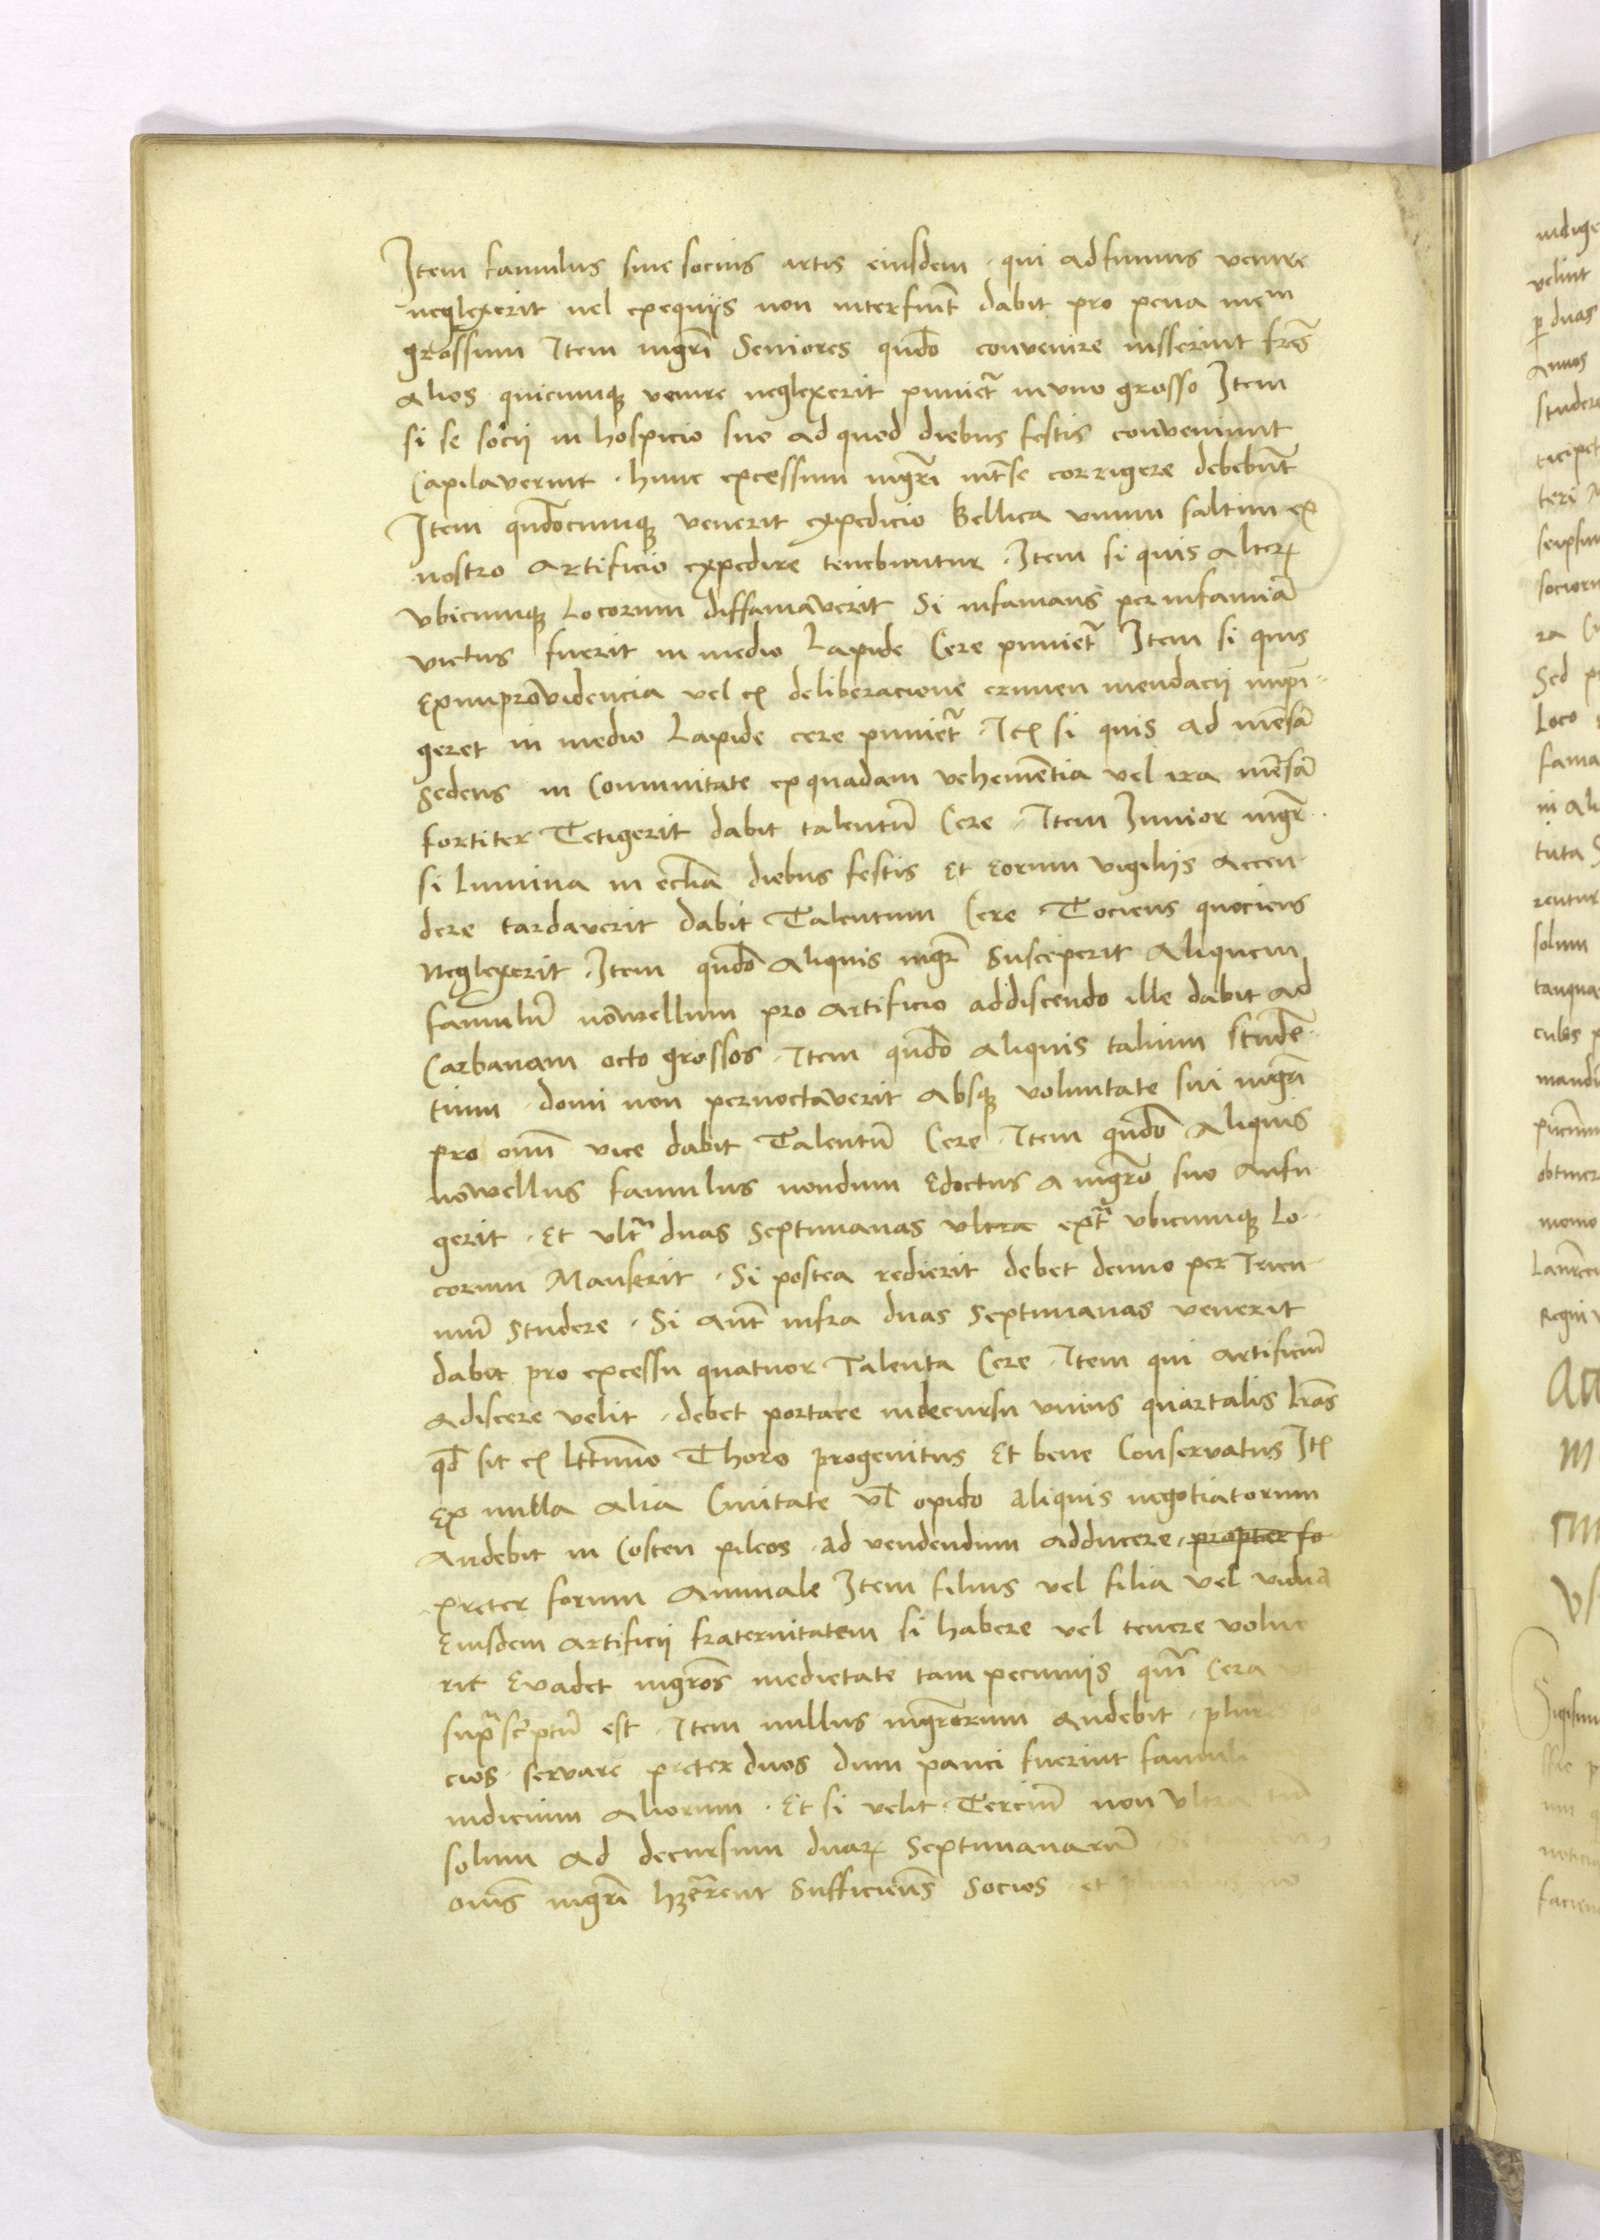 Item famulus sive socius artis eiusdem · qui ad funus venire
neglexerit vel exequiis non interfuerit dabit pro pena
grossum Item mgrī Seniores qndō convenire iusserint frēs
Alios quicumqꝫ venire neglexerit punietᷣ in uno grosso Item
si se socii in hospicio suo ad quod diebus festis conveniunt
Capilaverint · hunc excessum mgrī int se corrigere debebūt
Item qndōcumqꝫ venerit expedicio Bellica unum saltim ex
nostro Artificio expedire tenebuntur · Item si quis Alterꝫ
ubicumqꝫ Locorum diffamaverit Si infamans per infamiā
victus fuerit in medio Lapide Cere punietᷣ Item si quis
Ex improvidencia vel ex deliberacione crimen mendacii impī
geret in medio Lapide cere punietᷣ · Itꝫ si quis ad mēsā
Sedens in Comunitate ex quadam vehemētia vel ira mēsā
fortiter Tetigerit dabit talentū Cere · Item Iunior mgr̄
si Lumina in eccliā diebus festis Et Eorum vigiliis Accen
dere tardaverit dabit Talentum Cere · Tociens quociens
Neglexerit · Item qndō Aliquis mgr̄ Susceperit Aliquem
famulū nowellum pro Artificio addiscendo ille dabit Ad
Carbanam octo grossos · Item qndō Aliquis talium studē
tium · domi non pernoctaverit Absqꝫ voluntate sui mgrī
pro omī vice dabit Talentū Cere · Item qndō Aliquis
nowellus famulus nondum Edoctus A mgrō suo Aufu
gerit · Et ultᷓ duas Septimanas ultra extᷓ ubicumqꝫ Lo
corum Manserit · Si postea redierit debet denuo per Trien
niū studere · Si Aūt infra duas Septimanas venerit
dabit pro excessu quatuor Talenta Cere · Item qui Artificiū
Adiscere velit · debet portare in decursu unius quartalis lrās
qd̄ sit ex lttimo Thoro progenitus Et bene Conservatus Itꝫ
Ex nulla Alia Civitate vl̄ opido aliquis negotiatorum
Audebit in Costen pileos · ad vendendum adducere · propter fo
preter forum Annuale Item filius vel filia vel vidua
Eiusdem Artificii fraternitatem si habere vel tenere volue
rit Evadet mgrōs medietate tam pecuniis qm̄ Cera ut
supᷓscriptū est · Item nullus mgrōrum Audebit · plures so
cios · servare preter duos dum pauci fuerint famuli
indicium Aliorum · Et si velit Terciū non Ultra
solum Ad decursum duarꝫ Septimanarū
omēs mgrī hꝫerent Sufficiētes Socios · et